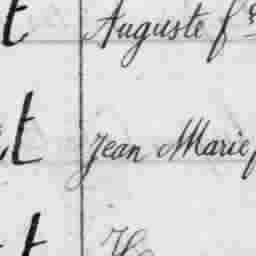 t Auguste fs
t Jean Marie f
t